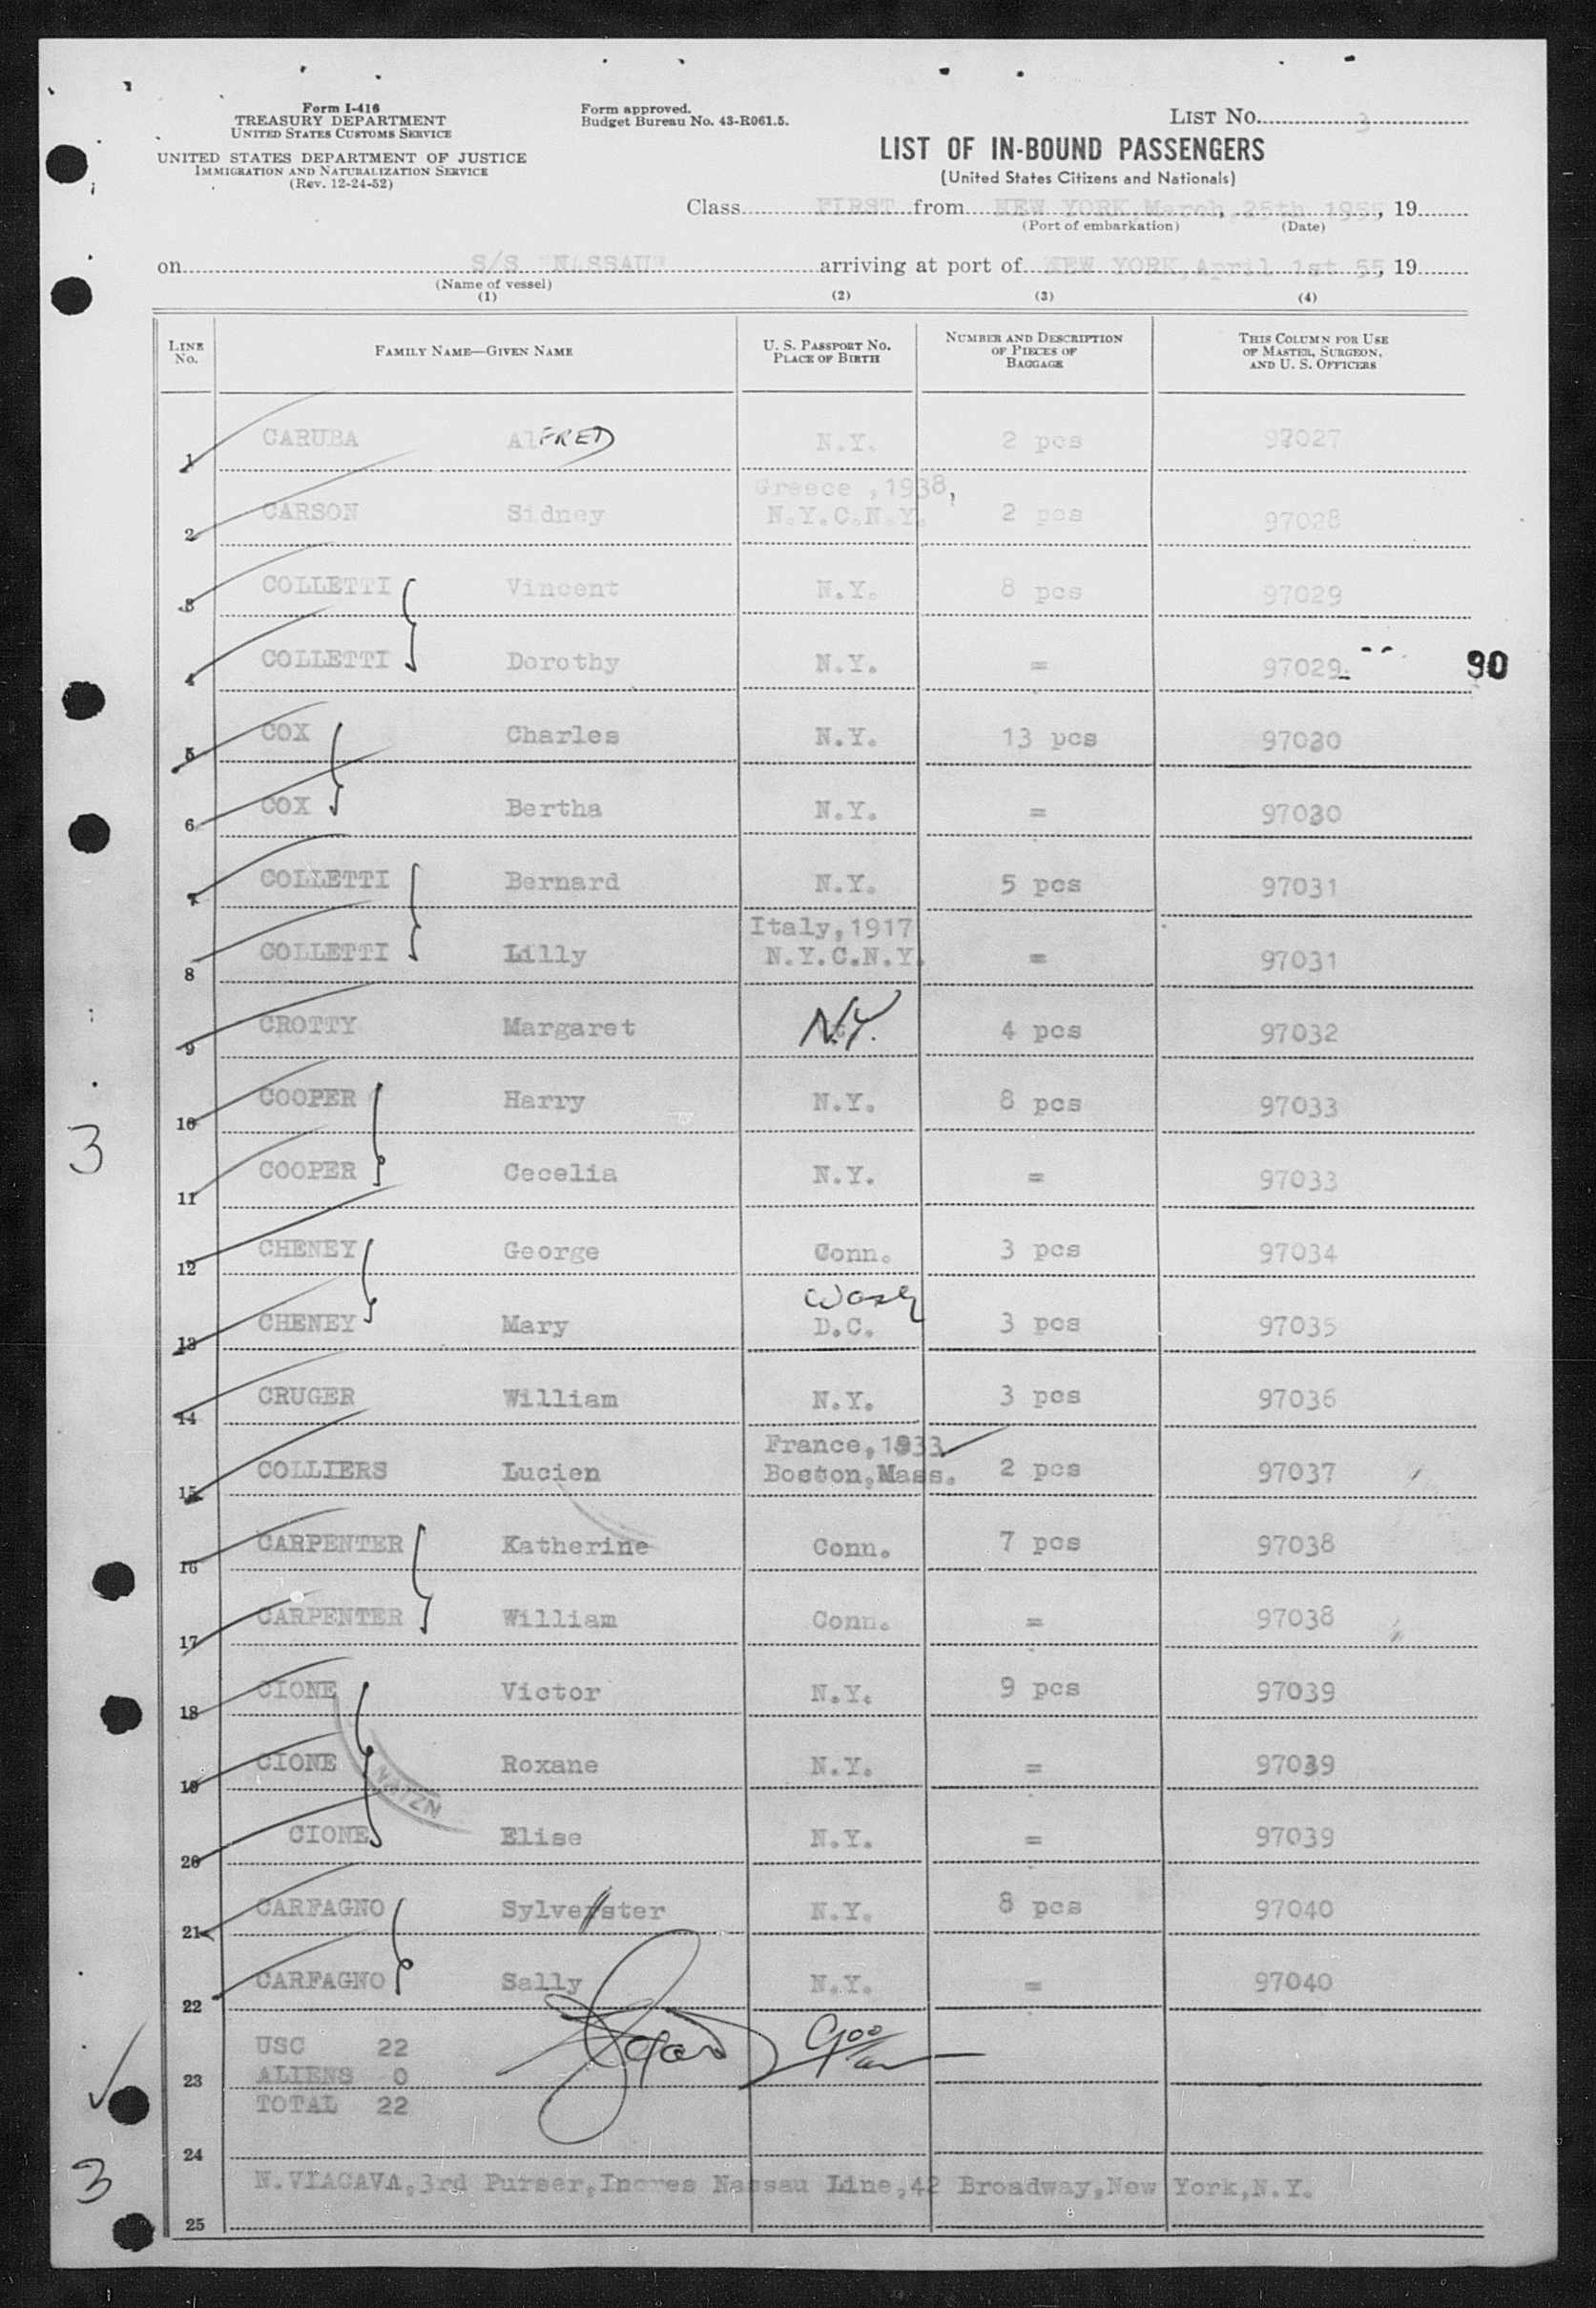 Form I-416
TREASURY DEPARTMENT
UNITED STATES CUSTOMS SERVICE
UNITED STATES DEPARTMENT OF JUSTICE
IMMIGRATION AND NATURALIZATION SERVICE
(Rev. 12-24-52)
Form approved.
Budget Bureau No. 43-R061.5.
LIST NO. 3
LIST OF IN-BOUND PASSENGERS
(United States Citizens and Nationals)
Class FIRST from NEW YORK, March, 25th 1955, 19
(Port of embarkation) (Date)
on S/S "NASSAU" arriving at port of NEW YORK, April 1st 55, 19
(Name of vessel)
(1) (2) (3) (4)
LINE NO. FAMILY NAME—GIVEN NAME U. S. PASSPORT NO. PLACE OF BIRTH NUMBER AND DESCRIPTION OF PIECES OF BAGGAGE THIS COLUMN FOR USE OF MASTER, SURGEON, AND U. S. OFFICERS
1 CARUBA AlFRED N.Y. 2 pcs 97027
Greece ,1938,
2 CARSON Sidney N.Y.C.N.Y. 2 pcs 97028
3 COLLETTI Vincent N.Y. 8 pcs 97029
4 COLLETTI Dorothy N.Y. = 97029 90
5 COX Charles N.Y. 13 pcs 97030
6 COX Bertha N.Y. = 97030
7 COLLETTI Bernard N.Y. 5 pcs 97031
Italy,1917
8 COLLETTI Lilly N.Y.C.N.Y. = 97031
9 CROTTY Margaret N.Y. 4 pcs 97032
10 COOPER Harry N.Y. 8 pcs 97033
3
11 COOPER Cecelia N.Y. = 97033
12 CHENEY George Conn. 3 pcs 97034
Wash
13 CHENEY Mary D.C. 3 pcs 97035
14 CRUGER William N.Y. 3 pcs 97036
France,1933
15 COLLIERS Lucien Boston,Mass. 2 pcs 97037
16 CARPENTER Katherine Conn. 7 pcs 97038
17 CARPENTER William Conn. = 97038
18 CIONE Victor N.Y. 9 pcs 97039
19 CIONE Roxane N.Y. = 97039
20 CIONE Elise N.Y. = 97039
21 CARFAGNO Sylverster N.Y. 8 pcs 97040
22 CARFAGNO Sally N.Y. = 97040
USC 22
23 ALIENS 0
TOTAL 22
24
3
N.VIACAVA,3rd Purser,Incres Nassau Line,42 Broadway,New York,N.Y.
25